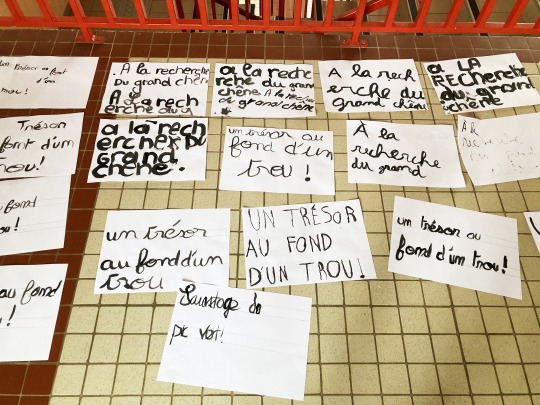 un trésor au fond
d'un
trou!
A la recherche
Du grand chêne
A la rech
erche du g
a la reche
rche du grand
chêne
du grand chêne
A la rech
erche du
grand chêne
a LA
RECHerche
du grand
chêne
Trésor
fond d'un
trou!
a la rech
erche DU
grand
chêne.
un trésor au
fond d'un
trou!
À la
recherche
du grand
A la
recherche
au fond
u!
un trésor
au fond d'un
trou
UN TRÉSOR
AU FOND
D'UN TROU!
un trésor au
fond d'un trou!
u
au fond
u!
Sauvetage du
pic vert!